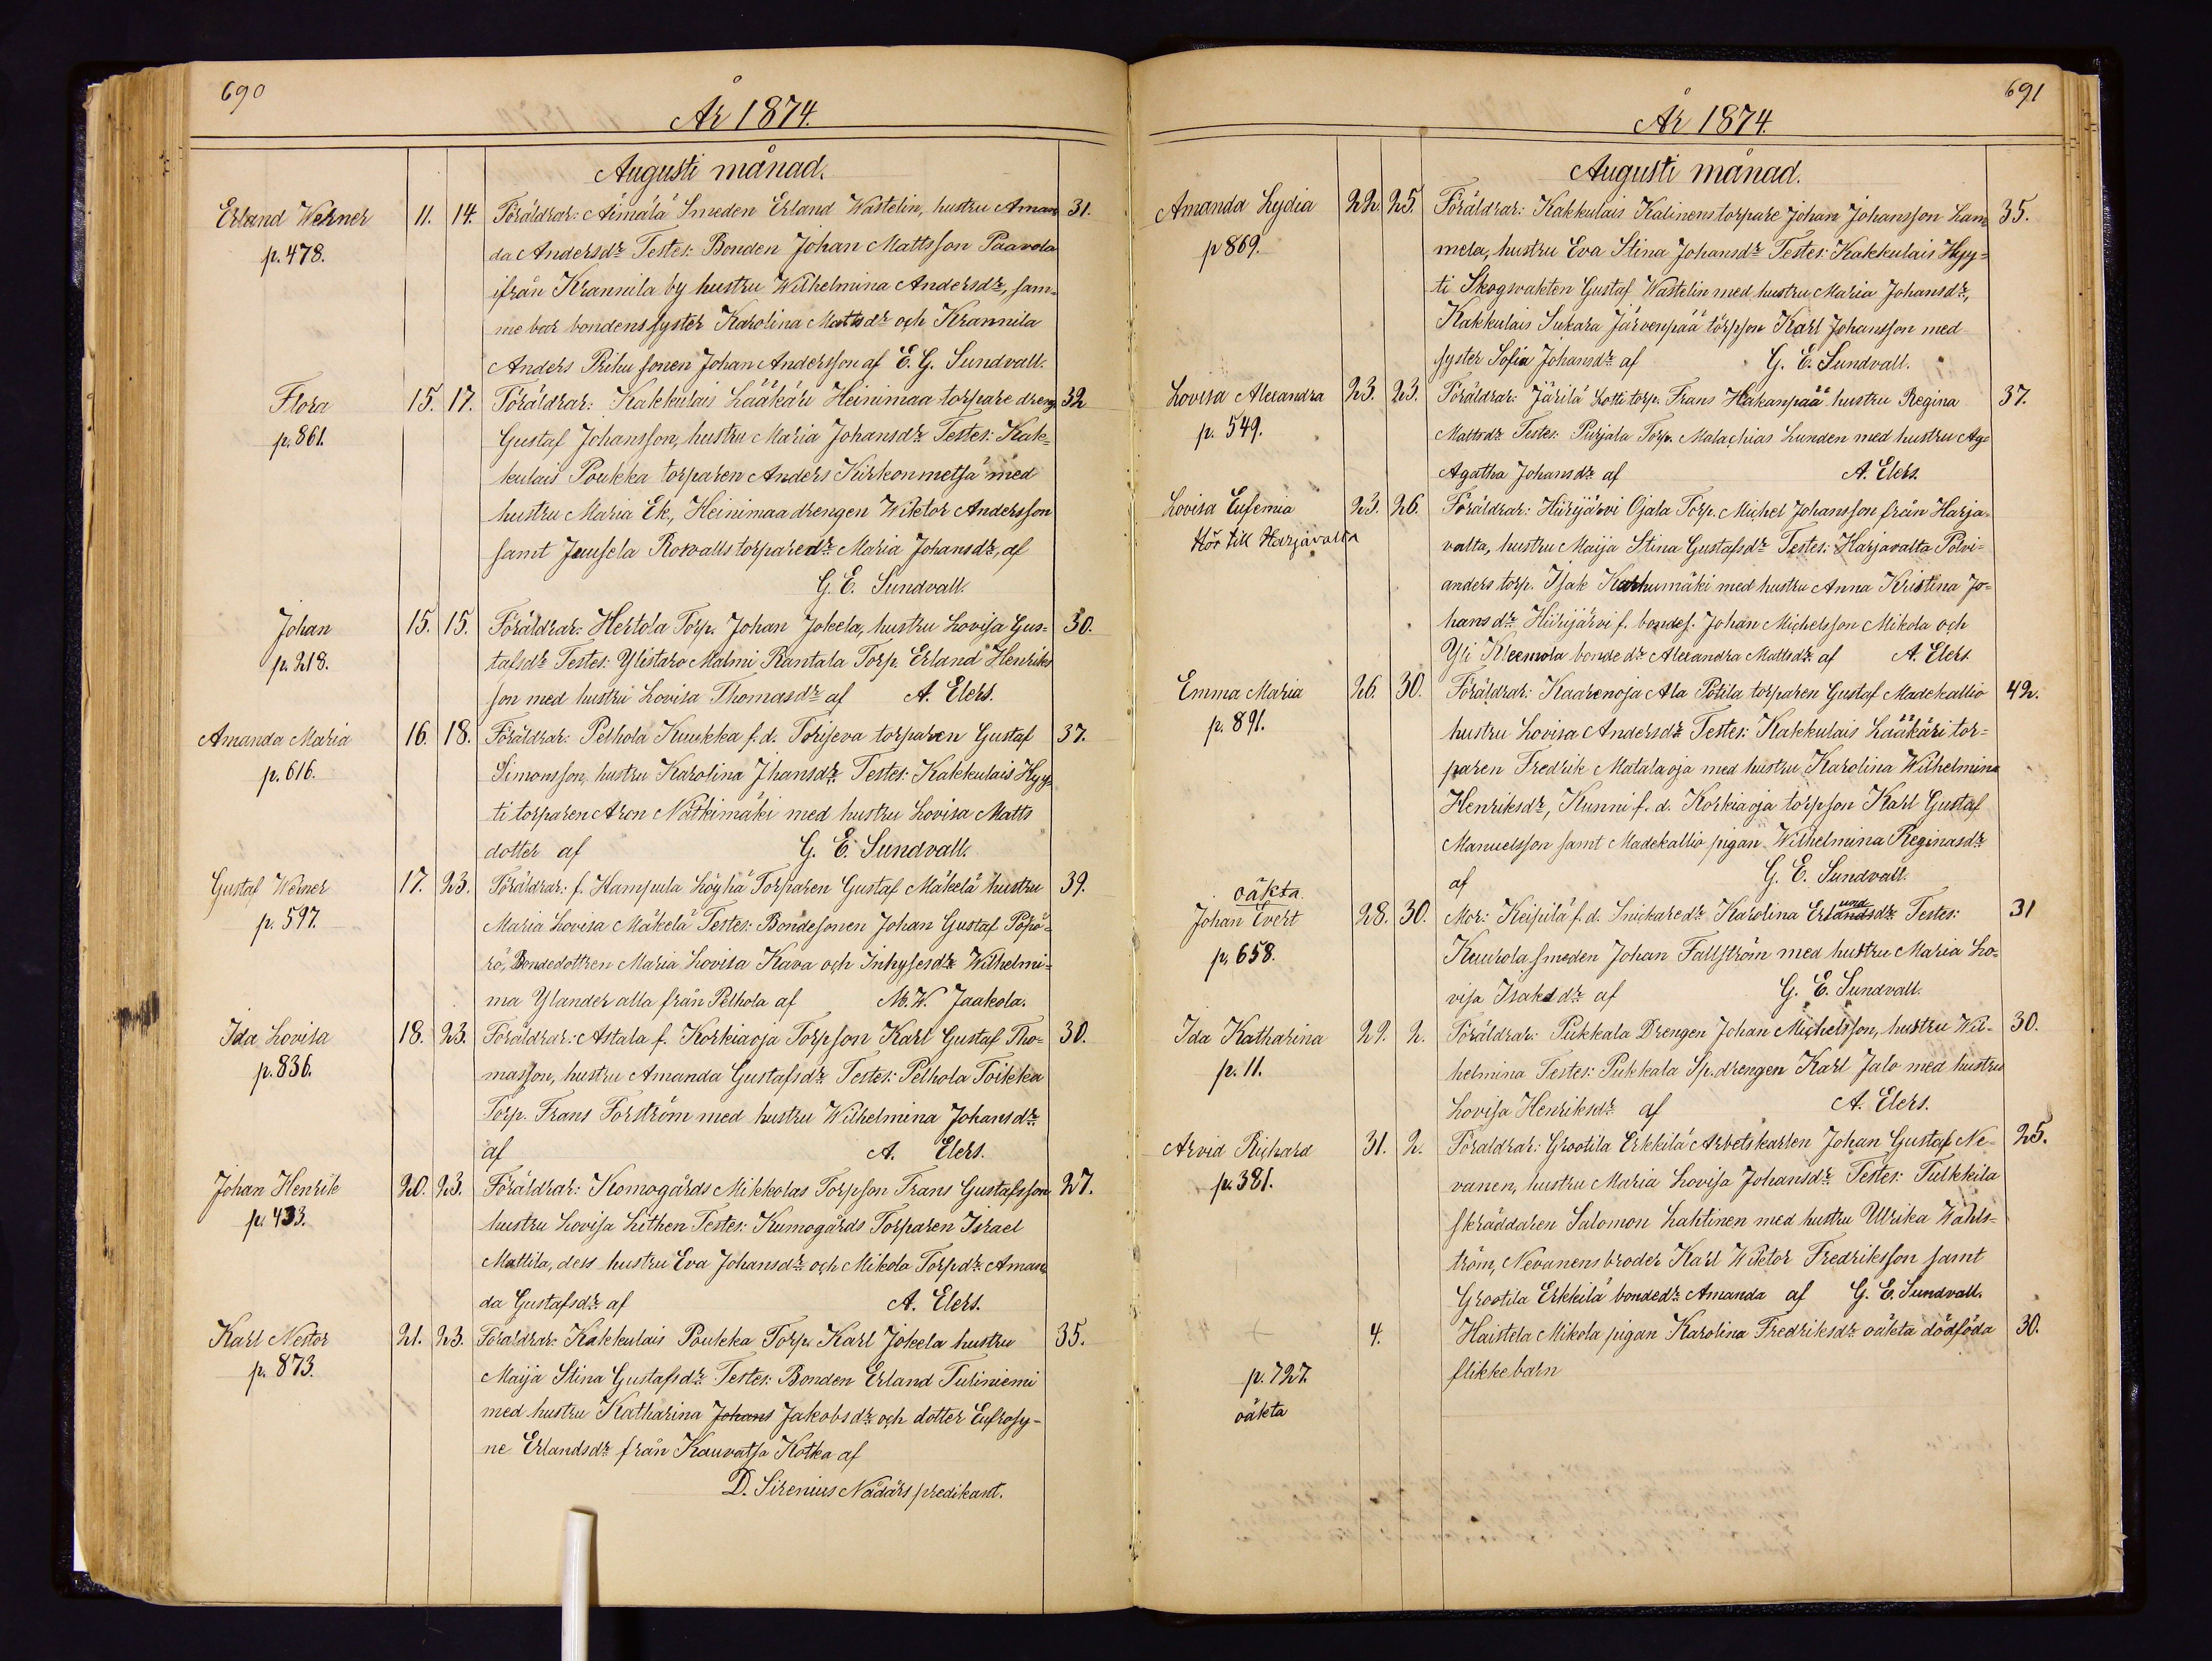 690
År 1874.
Augusti månad.
Erland Werner 11. 14. Föräldrar: Äimälä Smeden Erland Wastelin, hustru Aman 31.
p. 478. da Andersdr Testes: Bonden Johan Mattsson Paavola
ifrån Krannila by hustru Wilhelmina Andersdr, sam-
me bar bondens syster Karolina Mattsdr och Krannila
Anders Prihu sonen Johan Andersson af E. G. Sundvall.
Flora 15. 17. Föräldrar: Kakkulais Lääkäri Heinimaa torpare dreng 32
p. 861. Gustaf Johansson, hustru Maria Johansdr Testes: Kak-
kulais Poukka torparen Anders Kirkonmetsä med
hustru Maria Ek, Heinimaa drengen Wiktor Andersson
samt Juusela Rosvalls torparedr Maria Johansdr, af
G. E. Sundvall.
Johan 15. 15. Föräldrar: Hertola Torp. Johan Jokela, hustru Lovisa Gus- 30.
p. 218. tafsdr Testes: Ylistaro Malmi Rantala Torp. Erland Henriks
son med hustru Lovisa Thomasdr af A. Elers.
Amanda Maria 16. 18. Föräldrar: Pelhola Kuukka f. d. Torijeva torparen Gustaf 37.
p. 616. Simonsson, hustru Karolina Jhansdr. Testes: Kakkulais Hyy-
ti torparen Aron Nätkimäki med hustru Lovisa Matts
dotter af G. E. Sundvall.
Gustaf Werner 17. 23. Föräldrar: f. Hampula Löyhä Torparen Gustaf Mäkelä hustru 39.
p. 597. Maria Lovisa Mäkelä Testes: Bondesonen Johan Gustaf Pöpö-
rö, Bondedottren Maria Lovisa Kava och Inhysesdr Wilhelmi-
ma Ylander alla från Pelhola af M. W. Jaakola.
Ida Lovisa 18. 23. Föräldrar: Astala f. Korkiaoja Torpson Karl Gustaf Tho- 30.
p. 836. masson, hustru Amanda Gustafsdr Testes: Pelhola Toikka
Torp. Frans Forström med hustru Wilhelmina Johansdr
af A. Elers.
Johan Henrik 20. 23. Föräldrar: Komogårds Mikkolas Torpson Frans Gustafsson 27.
p. 433. hustru Lovisa Lithen Testes: Kumogårds Torparen Israel
Mattila, dess hustru Eva Johansdr och Mikola Torpdr Aman-
da Gustafsdr af A. Elers.
Karl Nestor 21. 23. Föräldrar: Kakkulais Poukka Torp. Karl Jokela hustru 35.
p. 873. Maija Stina Gustafsdr Testes: Bonden Erland Tuliniemi
med hustru Katharina Johans Jakobsdr och dotter Eufrosy-
ne Erlandsdr från Kauvatsa Kotka af
D. Sirenius Nådårs predikant.
691
År 1874.
Augusti månad.
Amanda Lydia 22. 25. Föräldrar: Kakkulais Kalinens torpare Johan Johansson Lam- 35.
p 869. mela, hustru Eva Stina Johansdr Testes: Kakkulais Hyy-
ti Skogsvakten Gustaf Wastelin med hustru Maria Johansdr,
Kakkulais Sukara Järvenpää törpson Karl Johansson med
syster Sofia Johansdr af G. E. Sundvall.
Lovisa Alexandra 23. 23. Föräldrar: Järilä Lotti torp. Frans Hakanpää hustru Regina 37.
p. 549. Mattsdr Testes: Purjala Torp. Malachias Lunden med hustru Ag-
Agatha Johansdr af A. Elers.
Lovisa Eufemia 23. 26. Föräldrar: Hiirijärvi Ojala Torp. Michel Johansson från Harja-
Hör till Harjavalta valta, hustru Maija Stina Gustafsdr Testes: Harjavalta Polvi-
anders torp. Isak Karhumäki med hustru Anna Kristina Jo-
hansdr Hiirijärvi f. bondes. Johan Michelsson Mikola och
Yli Kleemola bondedr Alexandra Mattsdr af A. Elers.
Emma Maria 26. 30. Föräldrar: Kaarenoja Ala Potila torparen Gustaf Madekallio 42.
p. 891. hustru Lovisa Andersdr Testes: Kakkulais Lääkäri tor-
paren Fredrik Matalaoja med hustru Karolina Wilhelmina
Henriksdr, Kunni f. d. Korkiaoja torpson Karl Gustaf
Manuelsson samt Madekallio pigan Wilhelmina Reginasdr
af G. E. Sundvall.
oäkta.
Johan Evert 28. 30. Mor: Keipilä f. d. Snickaredr Karolina Erlandsdr Testes: 31
p. 658. Kuurola smeden Johan Fallström med hustru Maria Lo-
visa Isaksdr af G. E. Sundvall.
Ida Katharina 29. 2. Föräldrar: Pukkala Drengen Johan Michelsson, hustru Wil- 30.
p. 11. helmina Testes: Pukkala Sp. drengen Karl Jalo med hustru
Lovisa Henriksdr af A. Elers.
Arvid Richard 31. 2. Föräldrar: Grootila Erkkilä Arbetskarlen Johan Gustaf Ne- 25.
p. 381. vanen, hustru Maria Lovisa Johansdr Testes: Tulkkila
skräddaren Salomon Lahtinen med hustru Ulrika Wahls-
tröm, Nevanens broder Karl Wiktor Fredriksson samt
Grootila Erkkilä bondedr Amanda af G. E. Sundvall.
4. Haistela Mikola pigan Karolina Fredriksdr oäkta dödföda 30.
p. 727. flikkebarn
oäkta